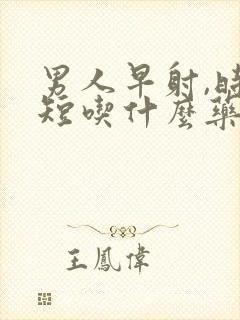 男人早射,時
短喫什麼藥
王鳳偉